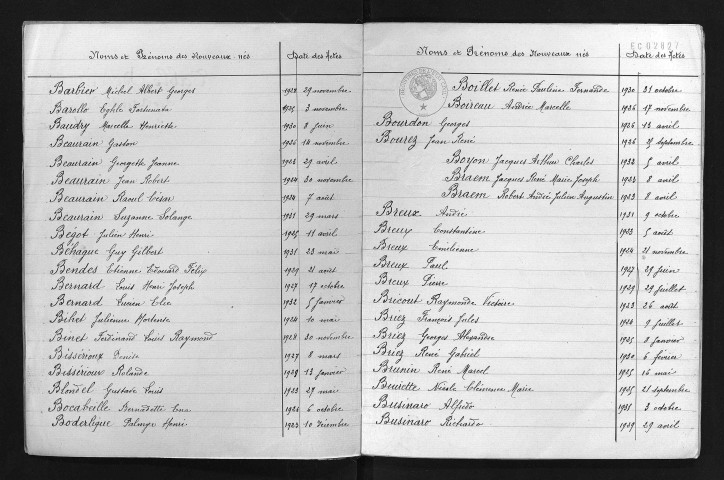 Noms et Prénoms des Nouveaux-nés Date des Actes
Barbier Michel Albert Georges 1928 29 novembre
Barollo Fortunata 3 novembre
Baudry Marcelle Henriette 1930 8 juin
Beaurain Gaston 1926 18 novembre
Beaurain Georgette Jeanne 29 avril
Beaurain Jean Robert 1924 30 novembre
Beaurain Raoul César 1924 7 août
Beaurain Suzanne Solange 1931 29 mars
Bégot Julien Henri 1925 11 avril
Béhague Guy Gilbert 1931 23 mai
Bendes Etienne Edouard Félix 1929 21 août
Bernard Louis Henri Joseph 1929 17 octobre
Bernard Lucien Elie 1932 5 janvier
Bihet Julienne Hortense 1924 10 mai
Binet Ferdinand Louis Raymond 1928 30 novembre
Bissérioux Denise 1927 8 mars
Bissérioux Rolande 1929 13 janvier
Blondel Gustave Louis 1923 27 mai
Bocabeille Bernadette 1924 6 octobre
Boderlique Palmyr Henri 1923 10 décembre
EC02827
Noms et Prénoms des Nouveaux nés Date des Actes
Boillet Renée Pauline Fernande 1930 31 octobre
Boireau Andrée Marcelle 1926 17 novembre
Bourdon Georges 1926 13 avril
Bourez Jean René 1926 septembre
Boyon Jacques Arthur Charles 1932 5 avril
Braem Jacques René Marie Joseph 8 avril
Braem Robert André Julien Augustin 1923 8 avril
Breux André 1931 9 octobre
Breux Constantine 1933 5 août
Breux Emilienne 1924 21 novembre
Breux Paul 1927 29 juin
Breux Pierre 1929 29 juillet
Bricout Raymonde Victoire 1923 26 août
Briez François Jules 1924 9 juillet
Briez Georges Alexandre 1925 8 janvier
Briez René Gabriel 1930 6 février
Brunin René Marcel 1925 16 mai
Nicole Clémence Marie 1925 21 septembre
Businaro Alfredo 1931 3 octobre
Businaro Richardo 1929 29 avril